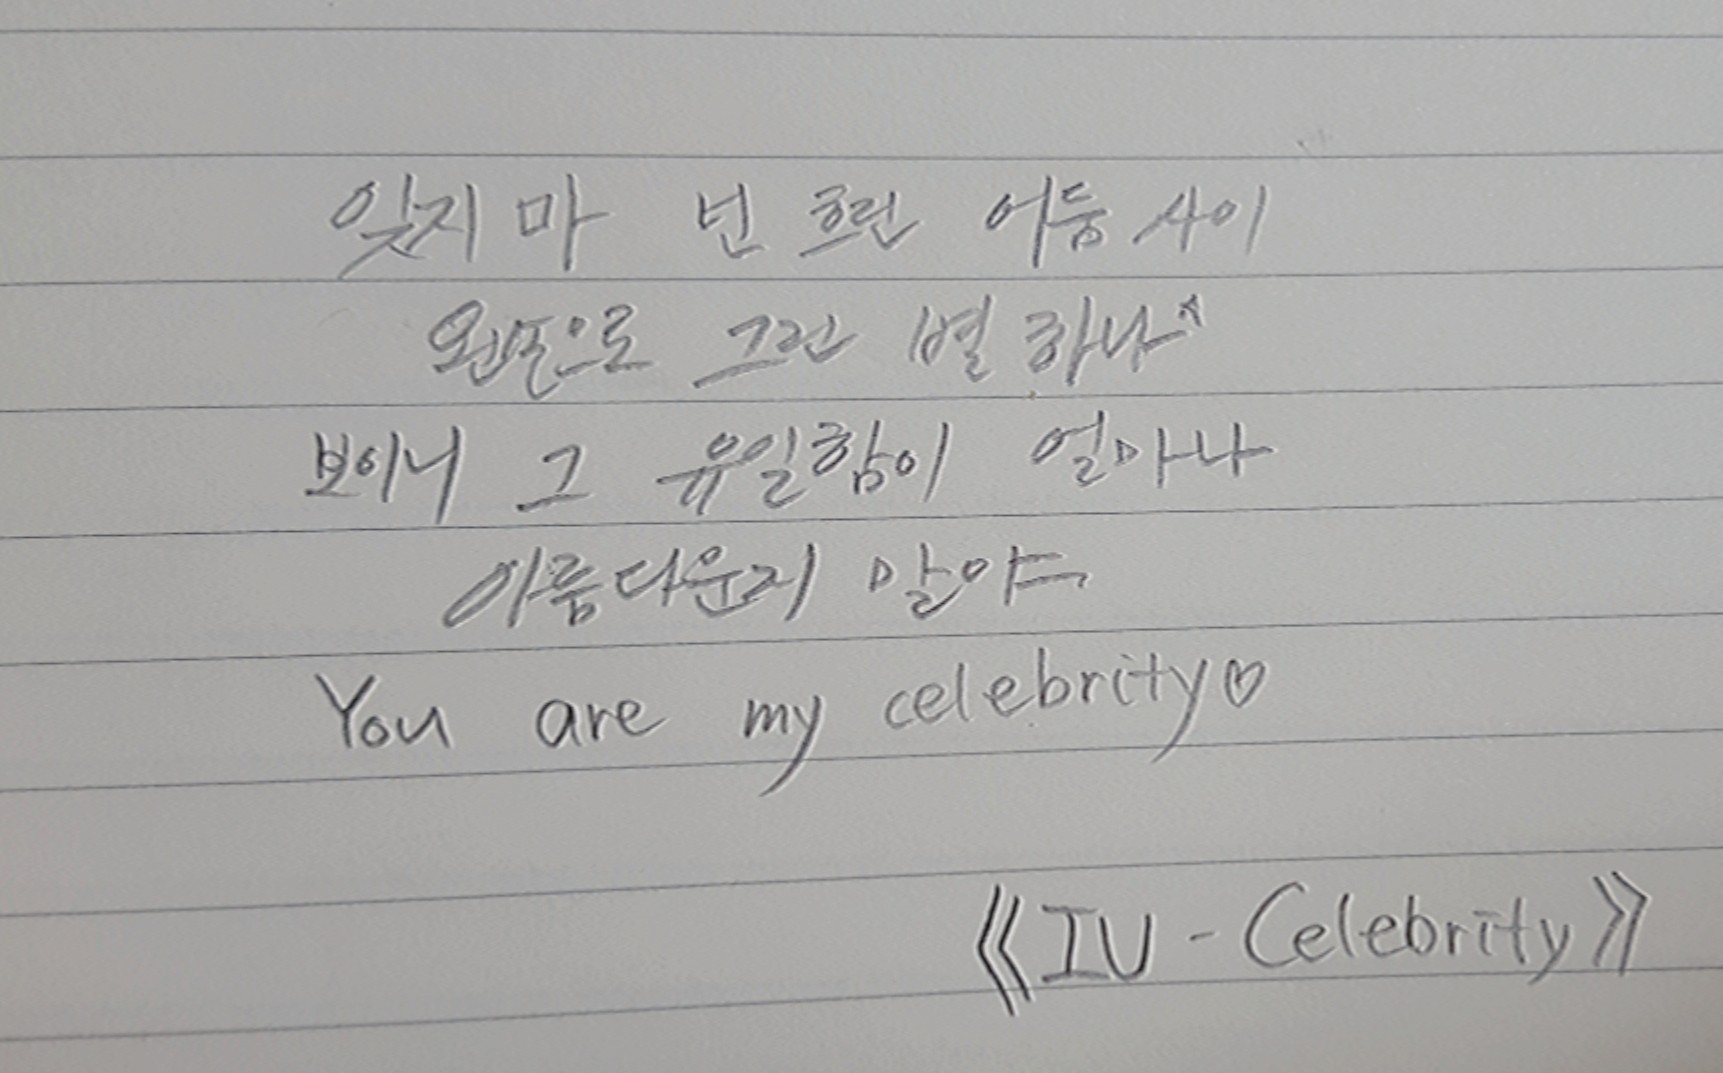 잊지 마 넌 흐린 어둠 사이
왼손으로 그린 별 하나☆
보이니 그 유일함이 얼마나
아름다운지 말야
You are my celebrity♡
《IU - Celebrity》